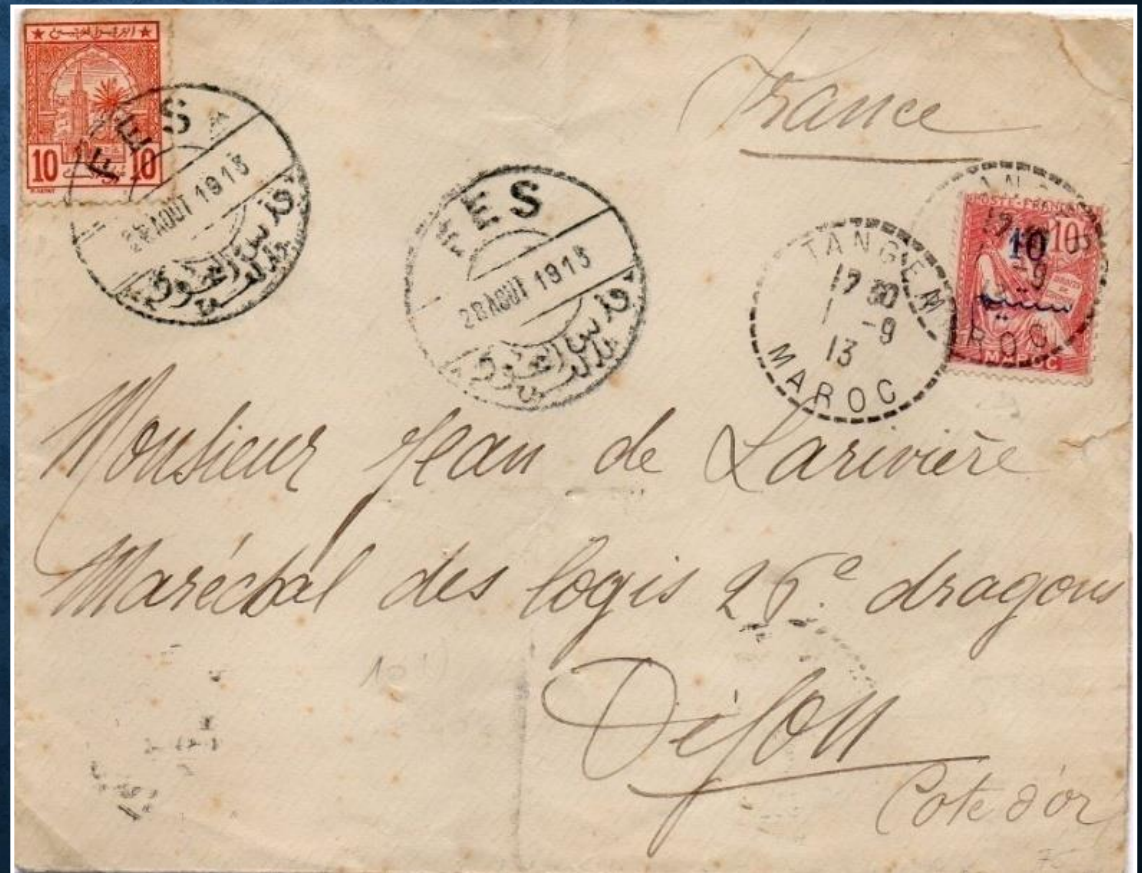 France
10 10
FES
28 AOUT 1913
FES
28 AOUT 1913
TANGER
17 30
1 -9
13
MAROC
POSTE FRANÇAISE
10
10
MAROC
Monsieur Jean de Larivière
Maréchal des logis 26e dragons
Dijon
Cote d'or